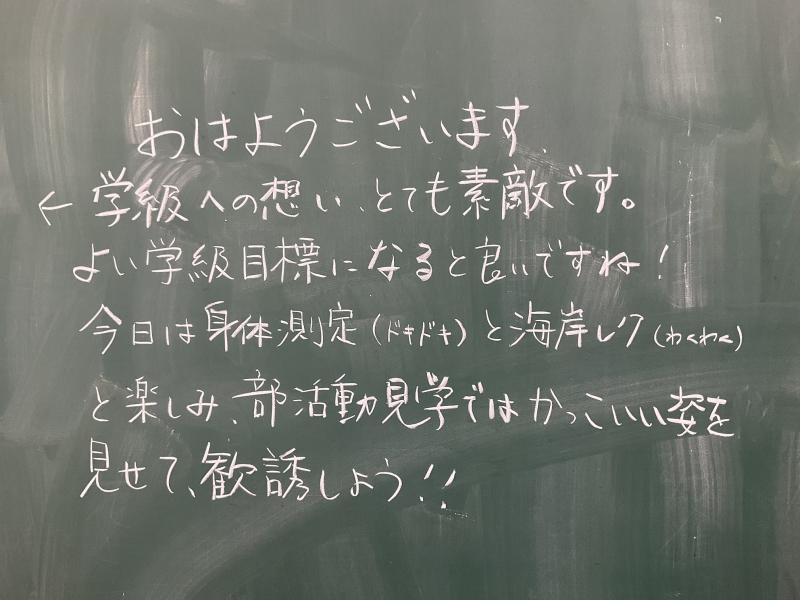 おはようございます.
← 学級への想い、とても素敵です。
よい学級目標になると良いですね！
今日は身体測定(ドキドキ)と海岸レク(わくわく)
と楽しみ、部活動見学ではかっこいい姿を
見せて、歓誘しよう!!